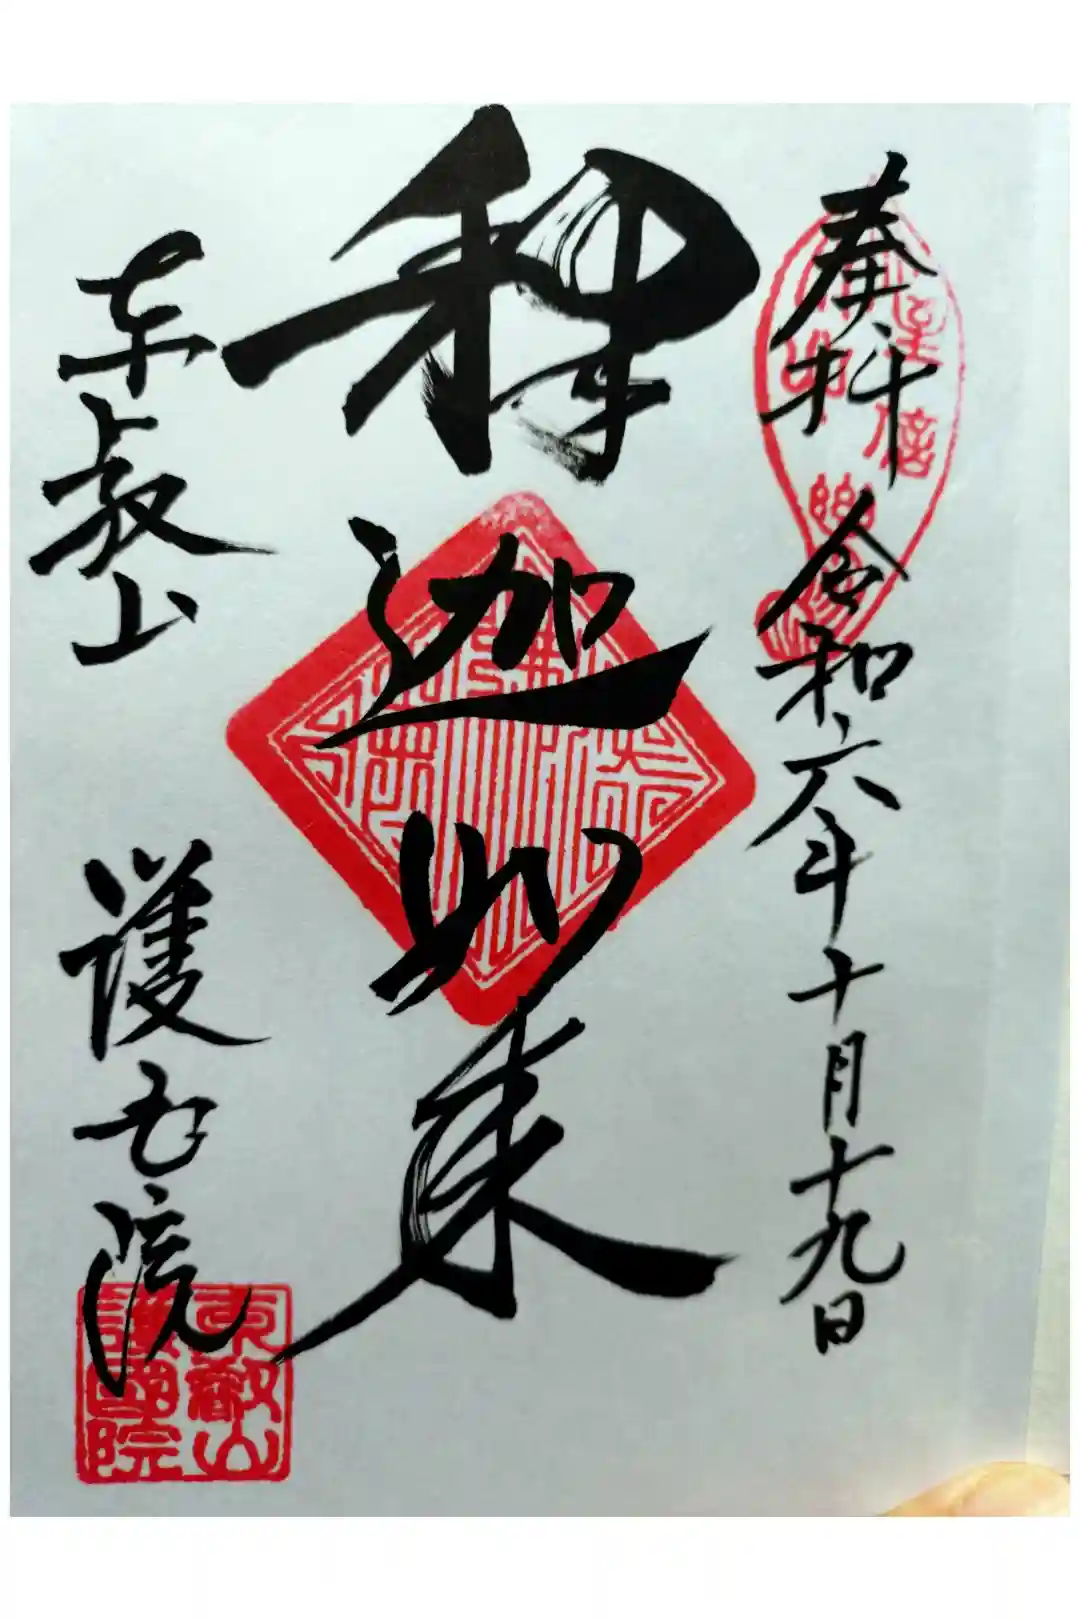 奉拝 令和六年十月十九日
釈迦如来
東叡山 護国院
東叡山
護國院